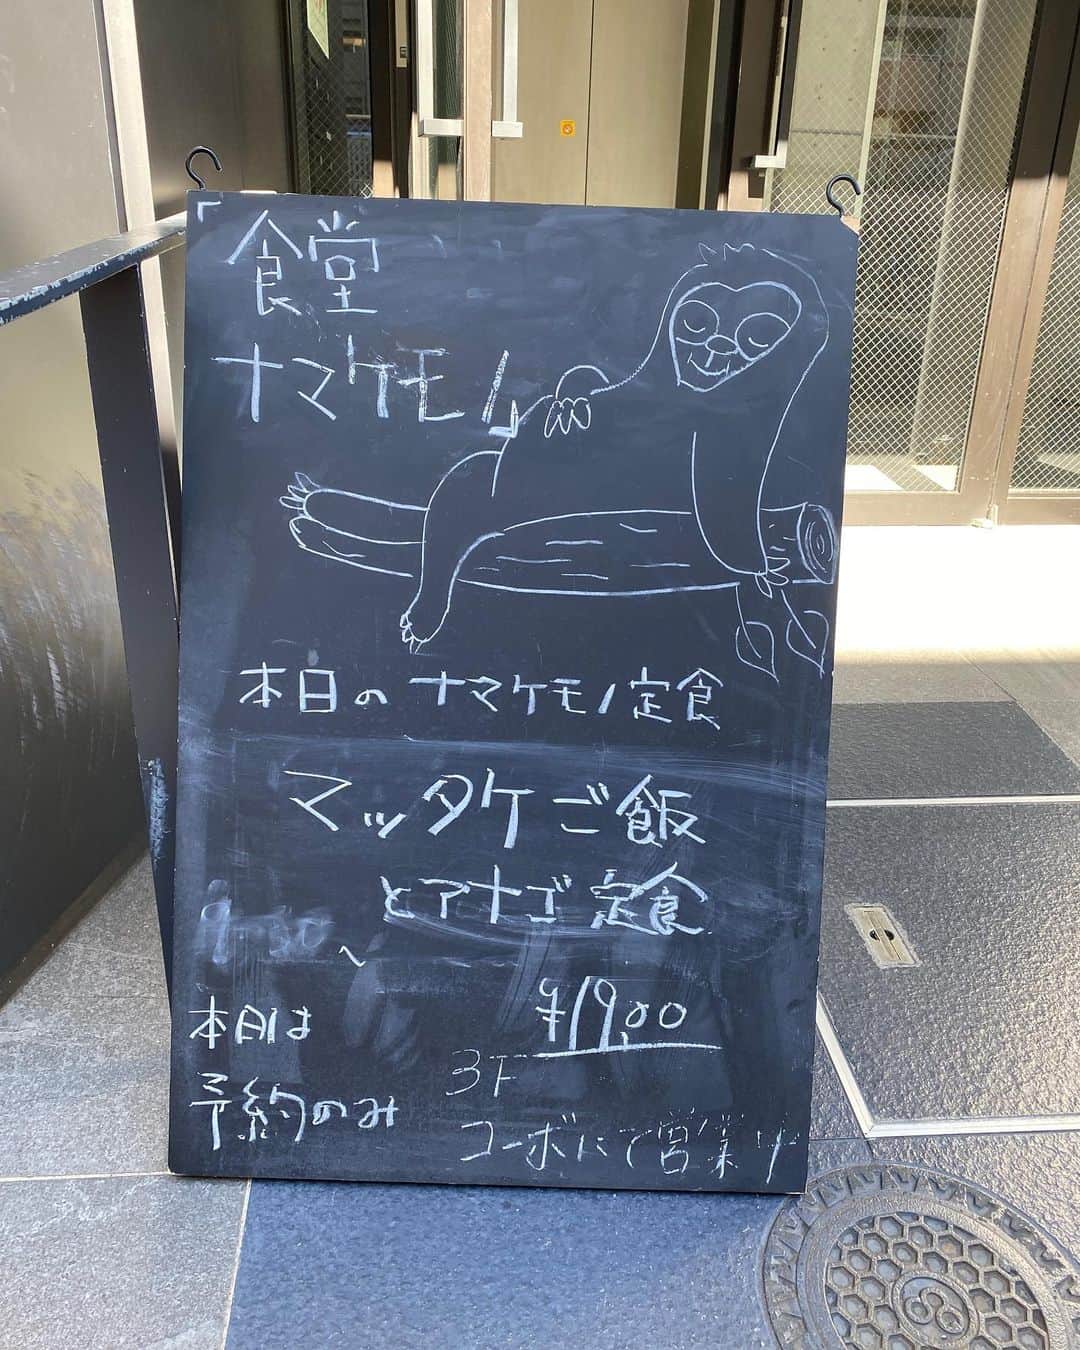 「食堂
ナマケモノ」
本日の ナマケモノ定食
マッタケご飯
とアナゴ定食
9:30
~
¥19,00
本日は
予約のみ
3F
コーポにて営業中